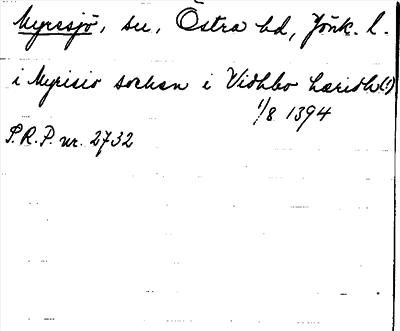 Myresjö, sn, Östra hd, Jönk. l.
i Myrisio sochen i Vidhbo hæridh(!)
1/8 1394
S.R.P. nr. 2732